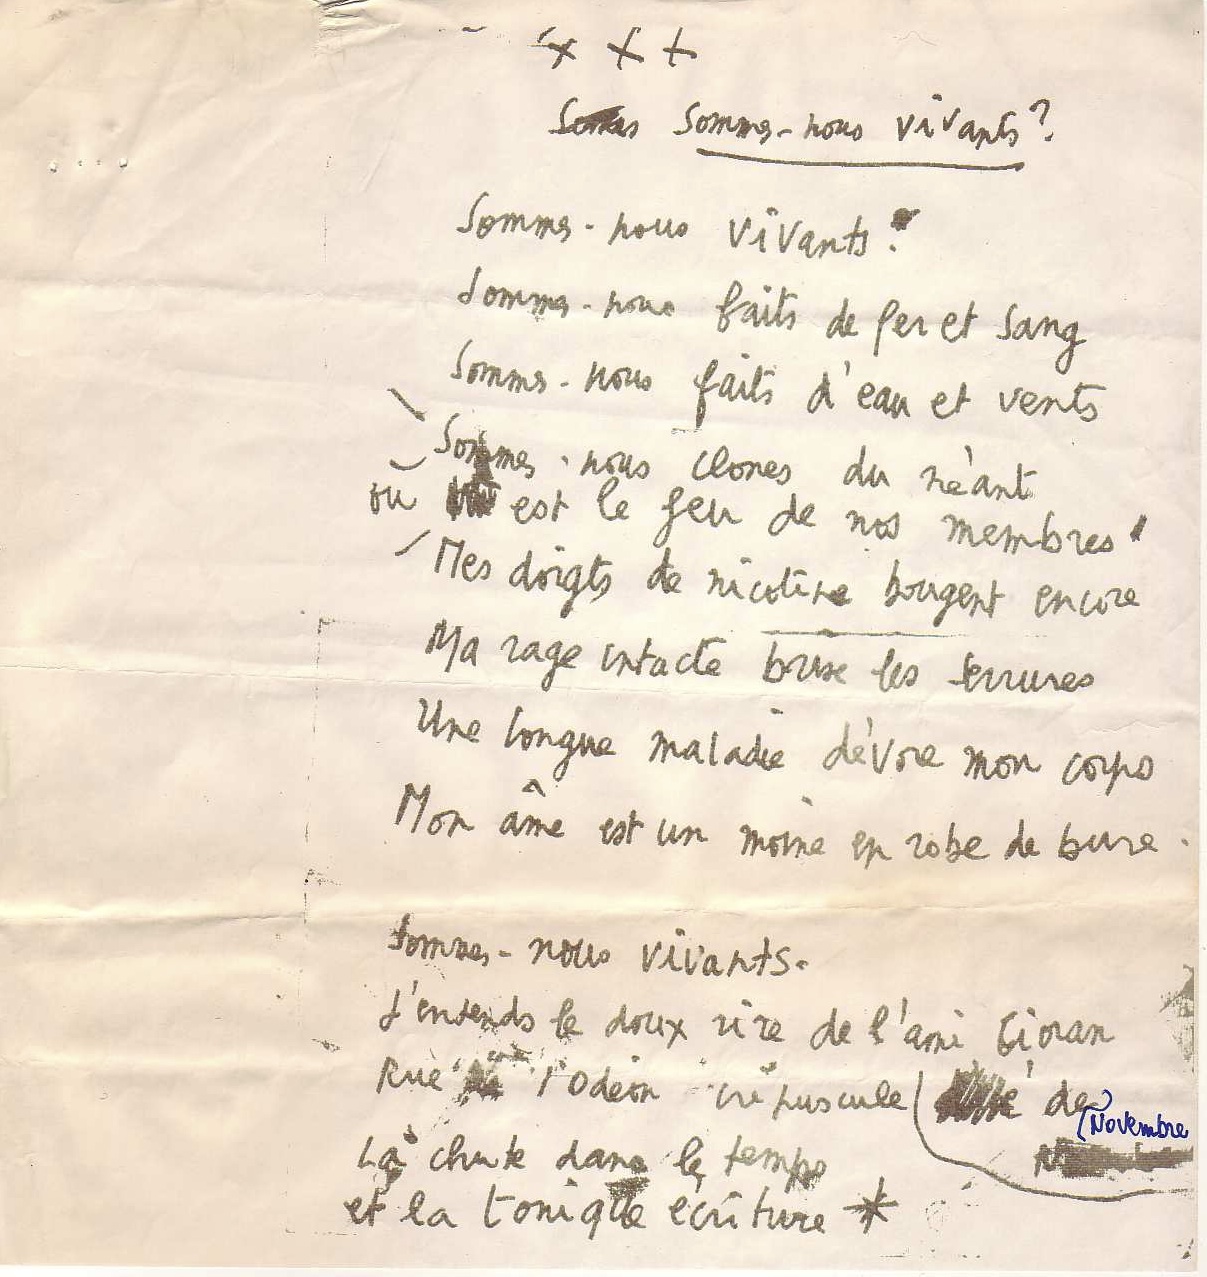 x x x
Sommes-nous vivants?
Sommes-nous vivants?
Sommes-nous faits de fer et sang
Sommes-nous faits d'eau et vents
Sommes-nous clones du néant
où est le feu de nos membres
Mes doigts de nicotine bougent encore
Ma rage intacte brise les serrures
Une longue maladie dévore mon corps
Mon âme est un moine en robe de bure.
Sommes-nous vivants.
J'entends le doux rire de l'ami Cioran
Rue l'Odéon crépuscule de
Novembre
La chute dans le temps
et la tonique écriture *